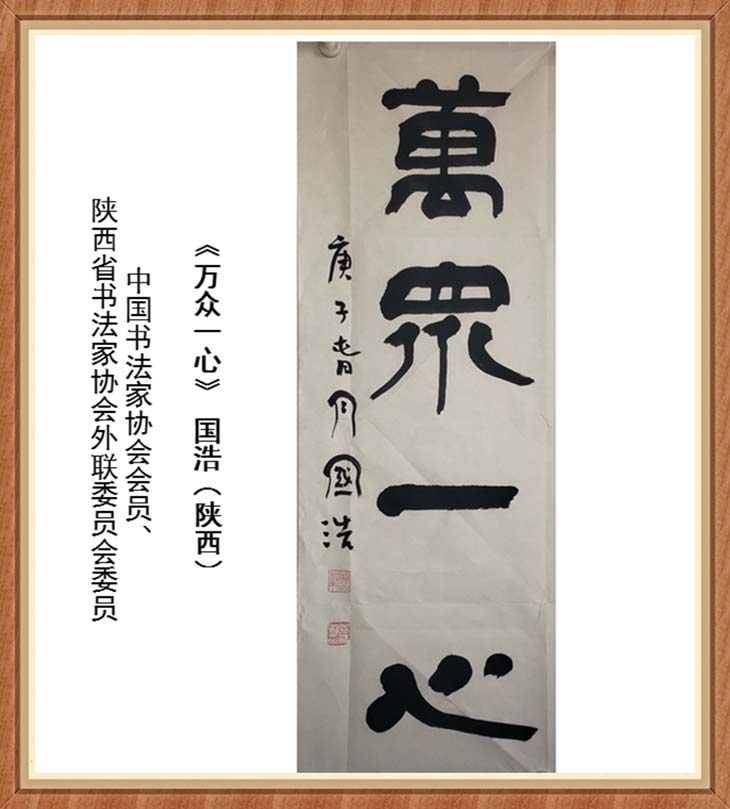 萬眾一心
庚子旾月國浩
《万众一心》 国浩（陕西）
中国书法家协会会员、
陕西省书法家协会外联委员会委员